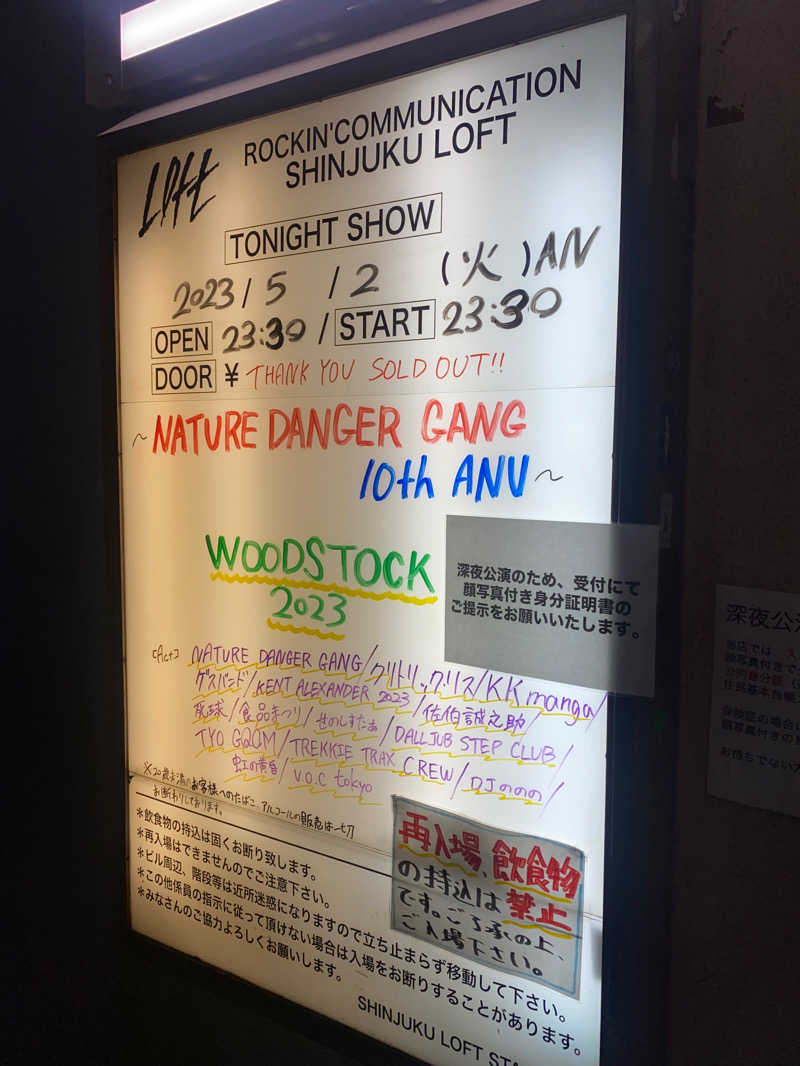 Loft
ROCKIN'COMMUNICATION
SHINJUKU LOFT
TONIGHT SHOW
2023/5/2 (火)AN
OPEN 23:30 / START 23:30
DOOR ¥ THANK YOU SOLD OUT!!
~NATURE DANGER GANG
10th ANV~
WOODSTOCK
2023
深夜公演のため、受付にて
顔写真付き身分証明書の
ご提示をお願いいたします。
[Act]
NATURE DANGER GANG/クリトリック・リス/KK manga/
ゲスバンド/KENT ALEXANDER 2023/佐伯誠之助/
/食品まつり/せのしすたぁ/DALLJUB STEP CLUB/
TYO GQOM/TREKKIE TRAX CREW/DJののの/
虹の黄昏/V.O.C tokyo
※20歳未満のお客様へのたばこ、アルコールの販売は一切
お断わりしております。
*飲食物の持込は固くお断り致します。
*再入場はできませんのでご注意下さい。
*ビル周辺、階段等は近所迷惑になりますので立ち止まらず移動して下さい。
*この他係員の指示に従って頂けない場合は入場をお断りすることがあります。
*みなさんのご協力よろしくお願いします。
SHINJUKU LOFT
再入場、飲食物
の持込は禁止
です。ご了承の上、
ご入場下さい。
深夜公
当店では
顔写真付きで
住民基本台帳
保険証の場合
顔写真付きの
お持ちでない